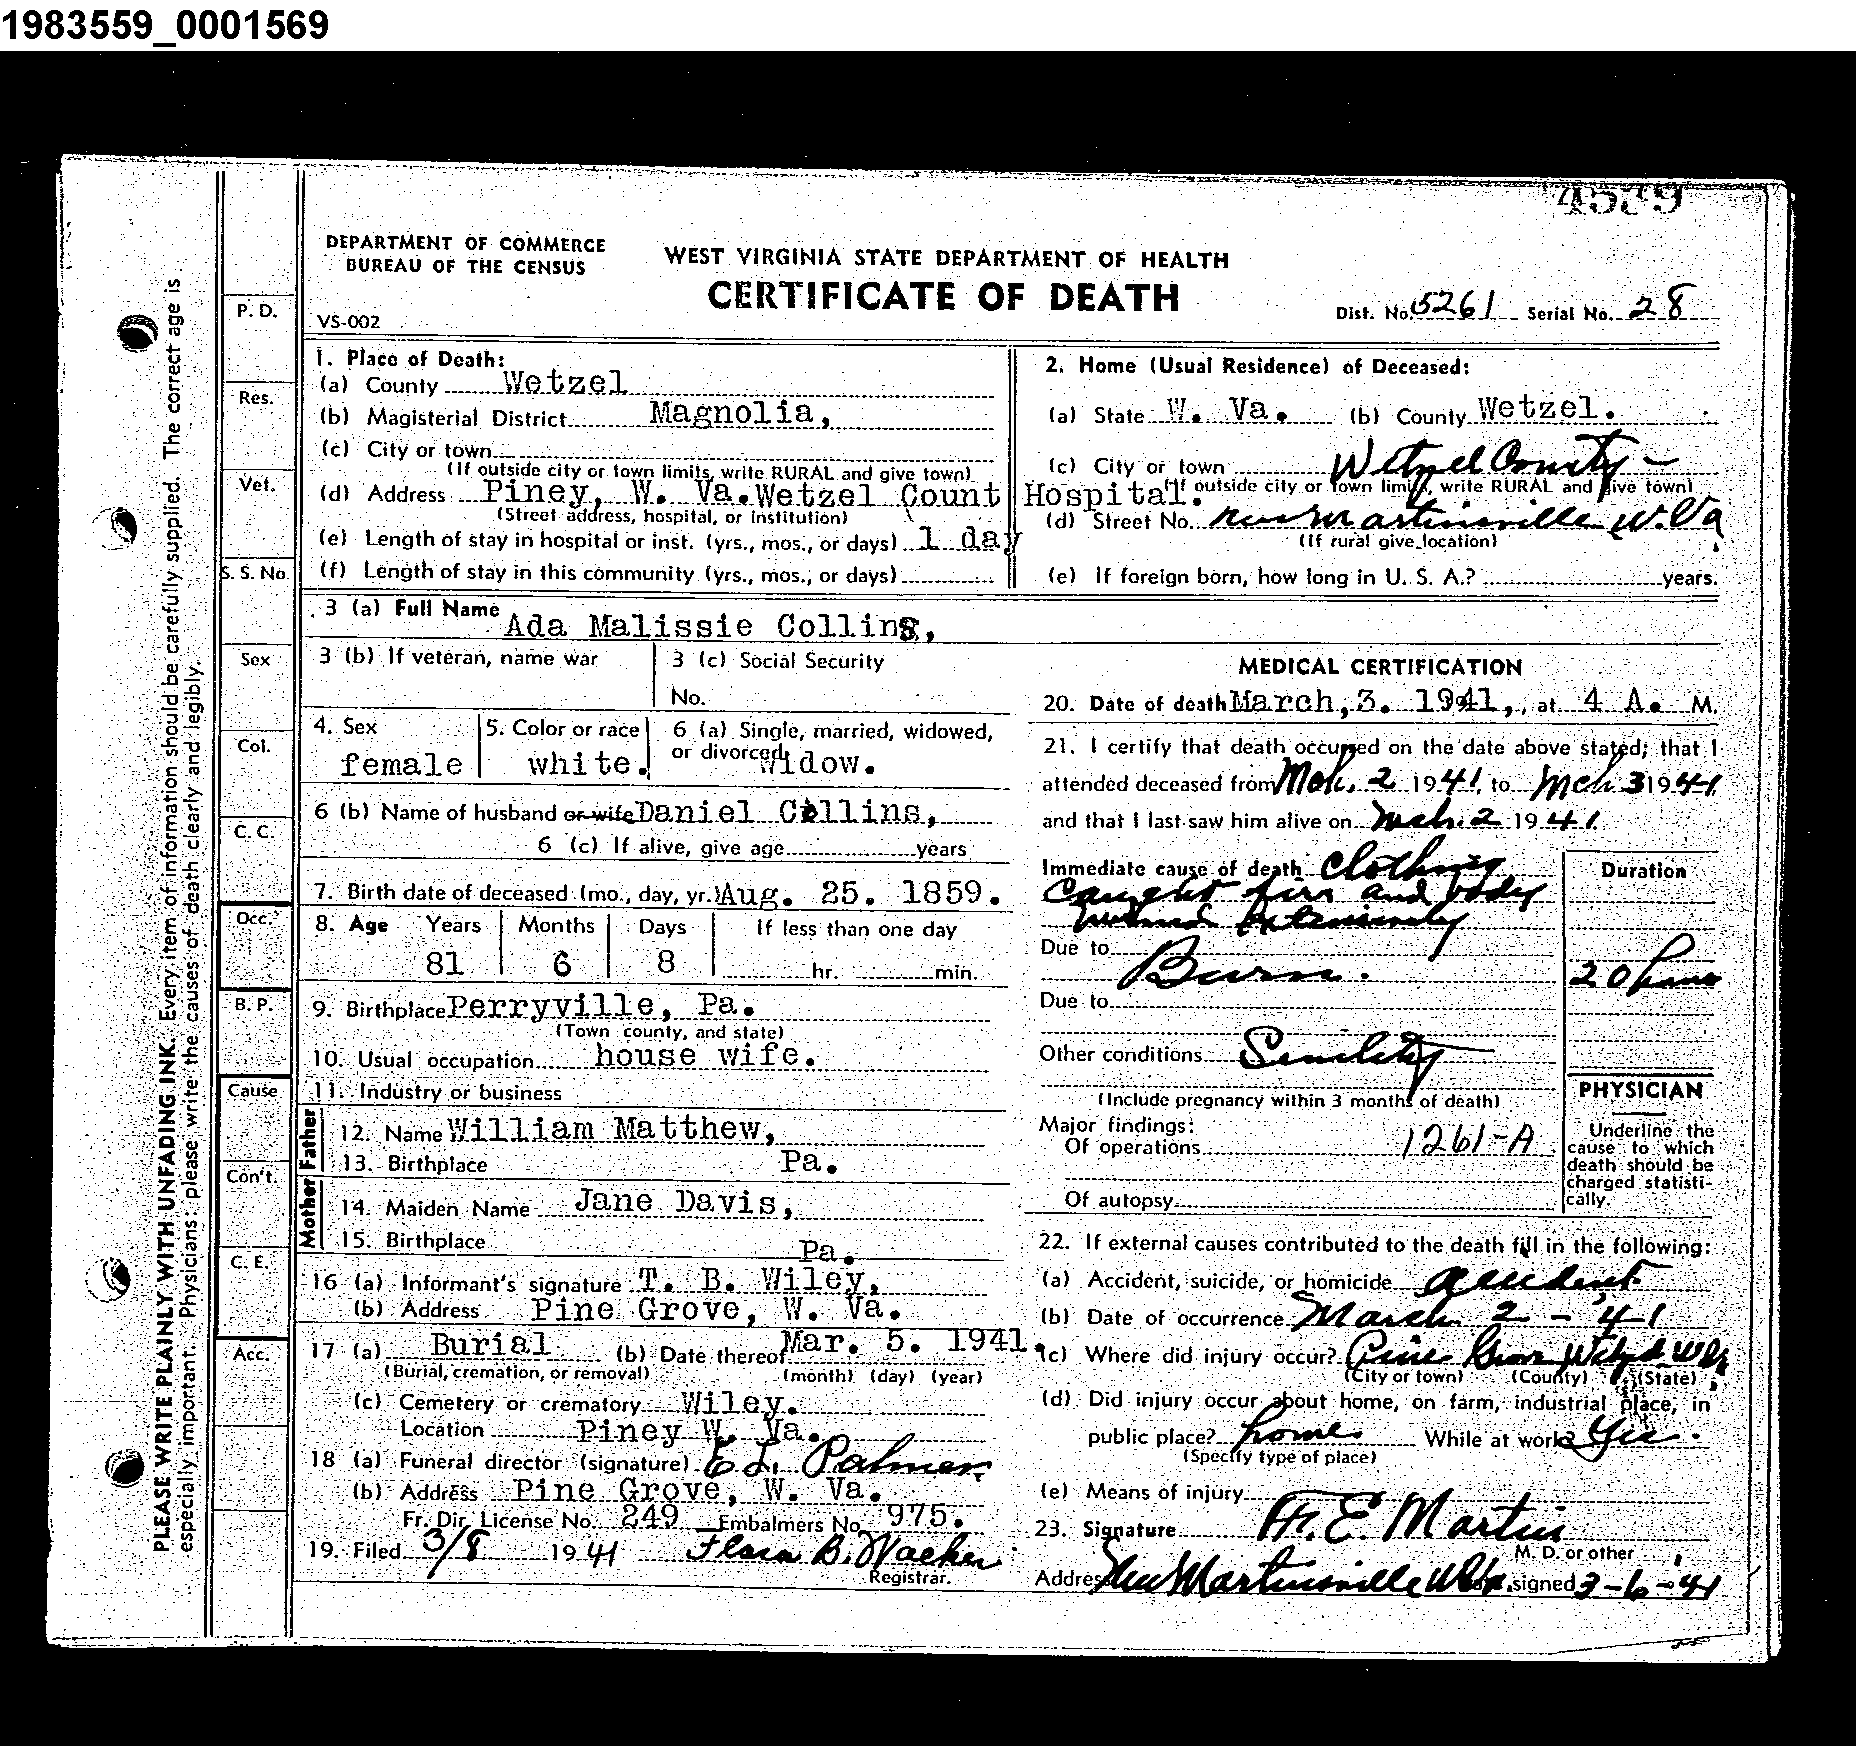 1983559_0001569
4539
DEPARTMENT OF COMMERCE
BUREAU OF THE CENSUS
WEST VIRGINIA STATE DEPARTMENT OF HEALTH
CERTIFICATE OF DEATH
VS-002
Dist. No. 5261 Serial No. 28
PLEASE WRITE PLAINLY WITH UNFADING INK. Every item of information should be carefully supplied. The correct age is
especially important. Physicians: please write the causes of death clearly and legibly.
P. D.
Res.
Vet.
S. S. No.
Sex
Col.
C. C.
Occ.
B. P.
Cause
Con't.
C. E.
Acc.
1. Place of Death:
(a) County Wetzel
(b) Magisterial District Magnolia,
(c) City or town
(If outside city or town limits, write RURAL and give town)
(d) Address Piney, W. Va. Wetzel Count Hospital.
(Street address, hospital, or institution)
(e) Length of stay in hospital or inst. (yrs., mos., or days) 1 day
(f) Length of stay in this community (yrs., mos., or days)
2. Home (Usual Residence) of Deceased:
(a) State W. Va. (b) County Wetzel.
(c) City or town Wetzel County -
(If outside city or town limits, write RURAL and give town)
(d) Street No. New Martinsville W. Va
(If rural give location)
(e) If foreign born, how long in U. S. A.? years.
3 (a) Full Name Ada Malissie Collins,
3 (b) If veteran, name war
3 (c) Social Security
No.
4. Sex female
5. Color or race white.
6 (a) Single, married, widowed,
or divorced Widow.
6 (b) Name of husband or wife Daniel Collins,
6 (c) If alive, give age years
7. Birth date of deceased (mo., day, yr.) Aug. 25. 1859.
8. Age Years Months Days If less than one day
81 6 8 hr. min.
9. Birthplace Perryville, Pa.
(Town county, and state)
10. Usual occupation house wife.
11. Industry or business
Father
12. Name William Matthew,
13. Birthplace Pa.
Mother
14. Maiden Name Jane Davis,
15. Birthplace Pa.
16 (a) Informant's signature T. B. Wiley,
(b) Address Pine Grove, W. Va.
17 (a) Burial (b) Date thereof Mar. 5. 1941.
(Burial, cremation, or removal) (month) (day) (year)
(c) Cemetery or crematory Wiley.
Location Piney W. Va.
18 (a) Funeral director (signature) E L. Palmer
(b) Address Pine Grove, W. Va.
Fr. Dir. License No. 249 Embalmers No. 975.
19. Filed 3/8 1941 Flora B. Walker
Registrar.
MEDICAL CERTIFICATION
20. Date of death March, 3. 1941, at 4 A. M.
21. I certify that death occurred on the date above stated; that I
attended deceased from Mch. 2 1941, to Mch 3 1941
and that I last saw him alive on Mch. 2 1941
Immediate cause of death Clothing
caught fire and body
burned extensively
Duration
Due to
Burns. 20 hours
Due to
Other conditions Senility
(Include pregnancy within 3 months of death)
Major findings:
Of operations 1261-A
Of autopsy
PHYSICIAN
Underline the
cause to which
death should be
charged statisti-
cally.
22. If external causes contributed to the death fill in the following:
(a) Accident, suicide, or homicide accident
(b) Date of occurrence March 2 - '41
(c) Where did injury occur? Pine Grove Wetzel W Va
(City or town) (County) (State)
(d) Did injury occur about home, on farm, industrial place, in
public place? home While at work? Yes.
(Specify type of place)
(e) Means of injury
23. Signature E. Martin
M. D. or other
Address New Martinsville W Va. signed 3-6-41